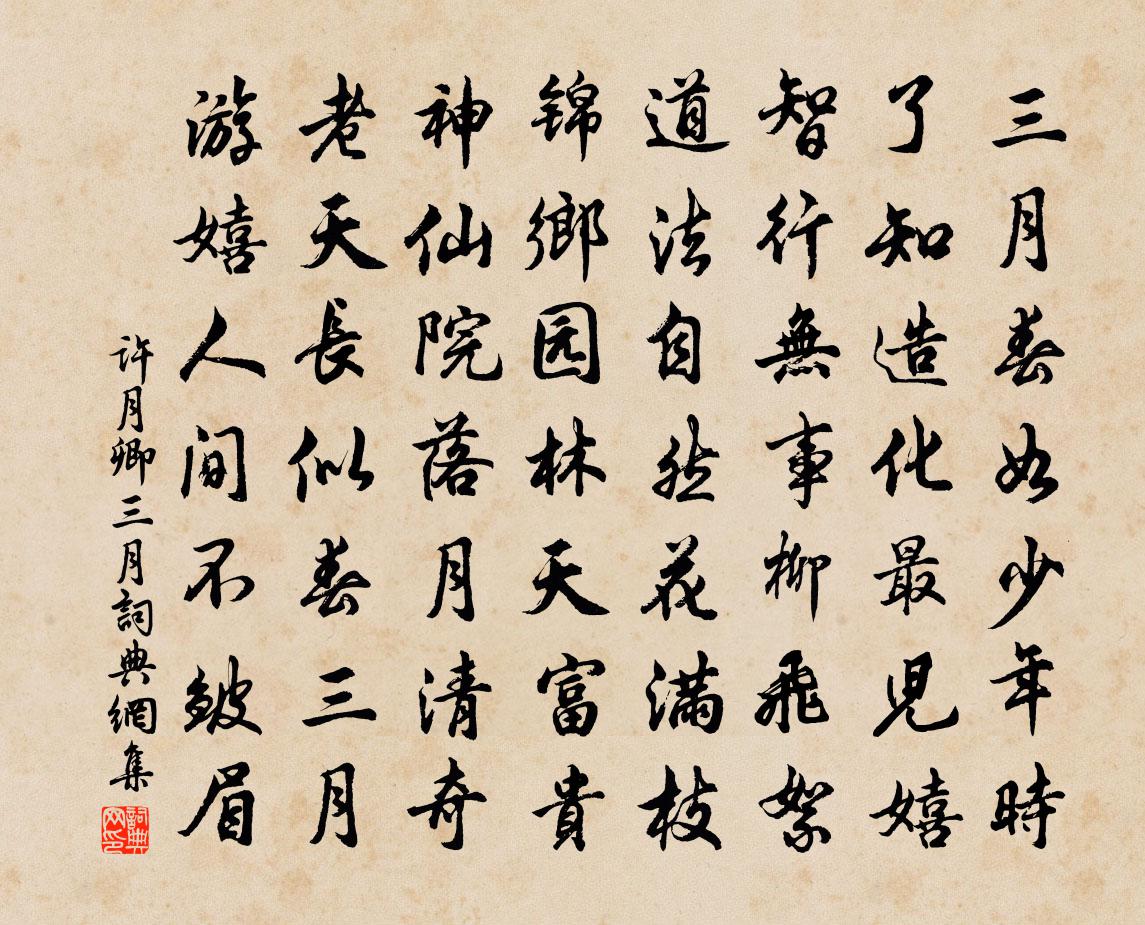 三月春如少年時
了知造化最児嬉
智行無事柳飛絮
道法自然花滿枝
锦鄉园林天富貴
神仙院落月清奇
老天長似春三月
游嬉人間不皺眉
許月卿三月詞典網集
詞典网印